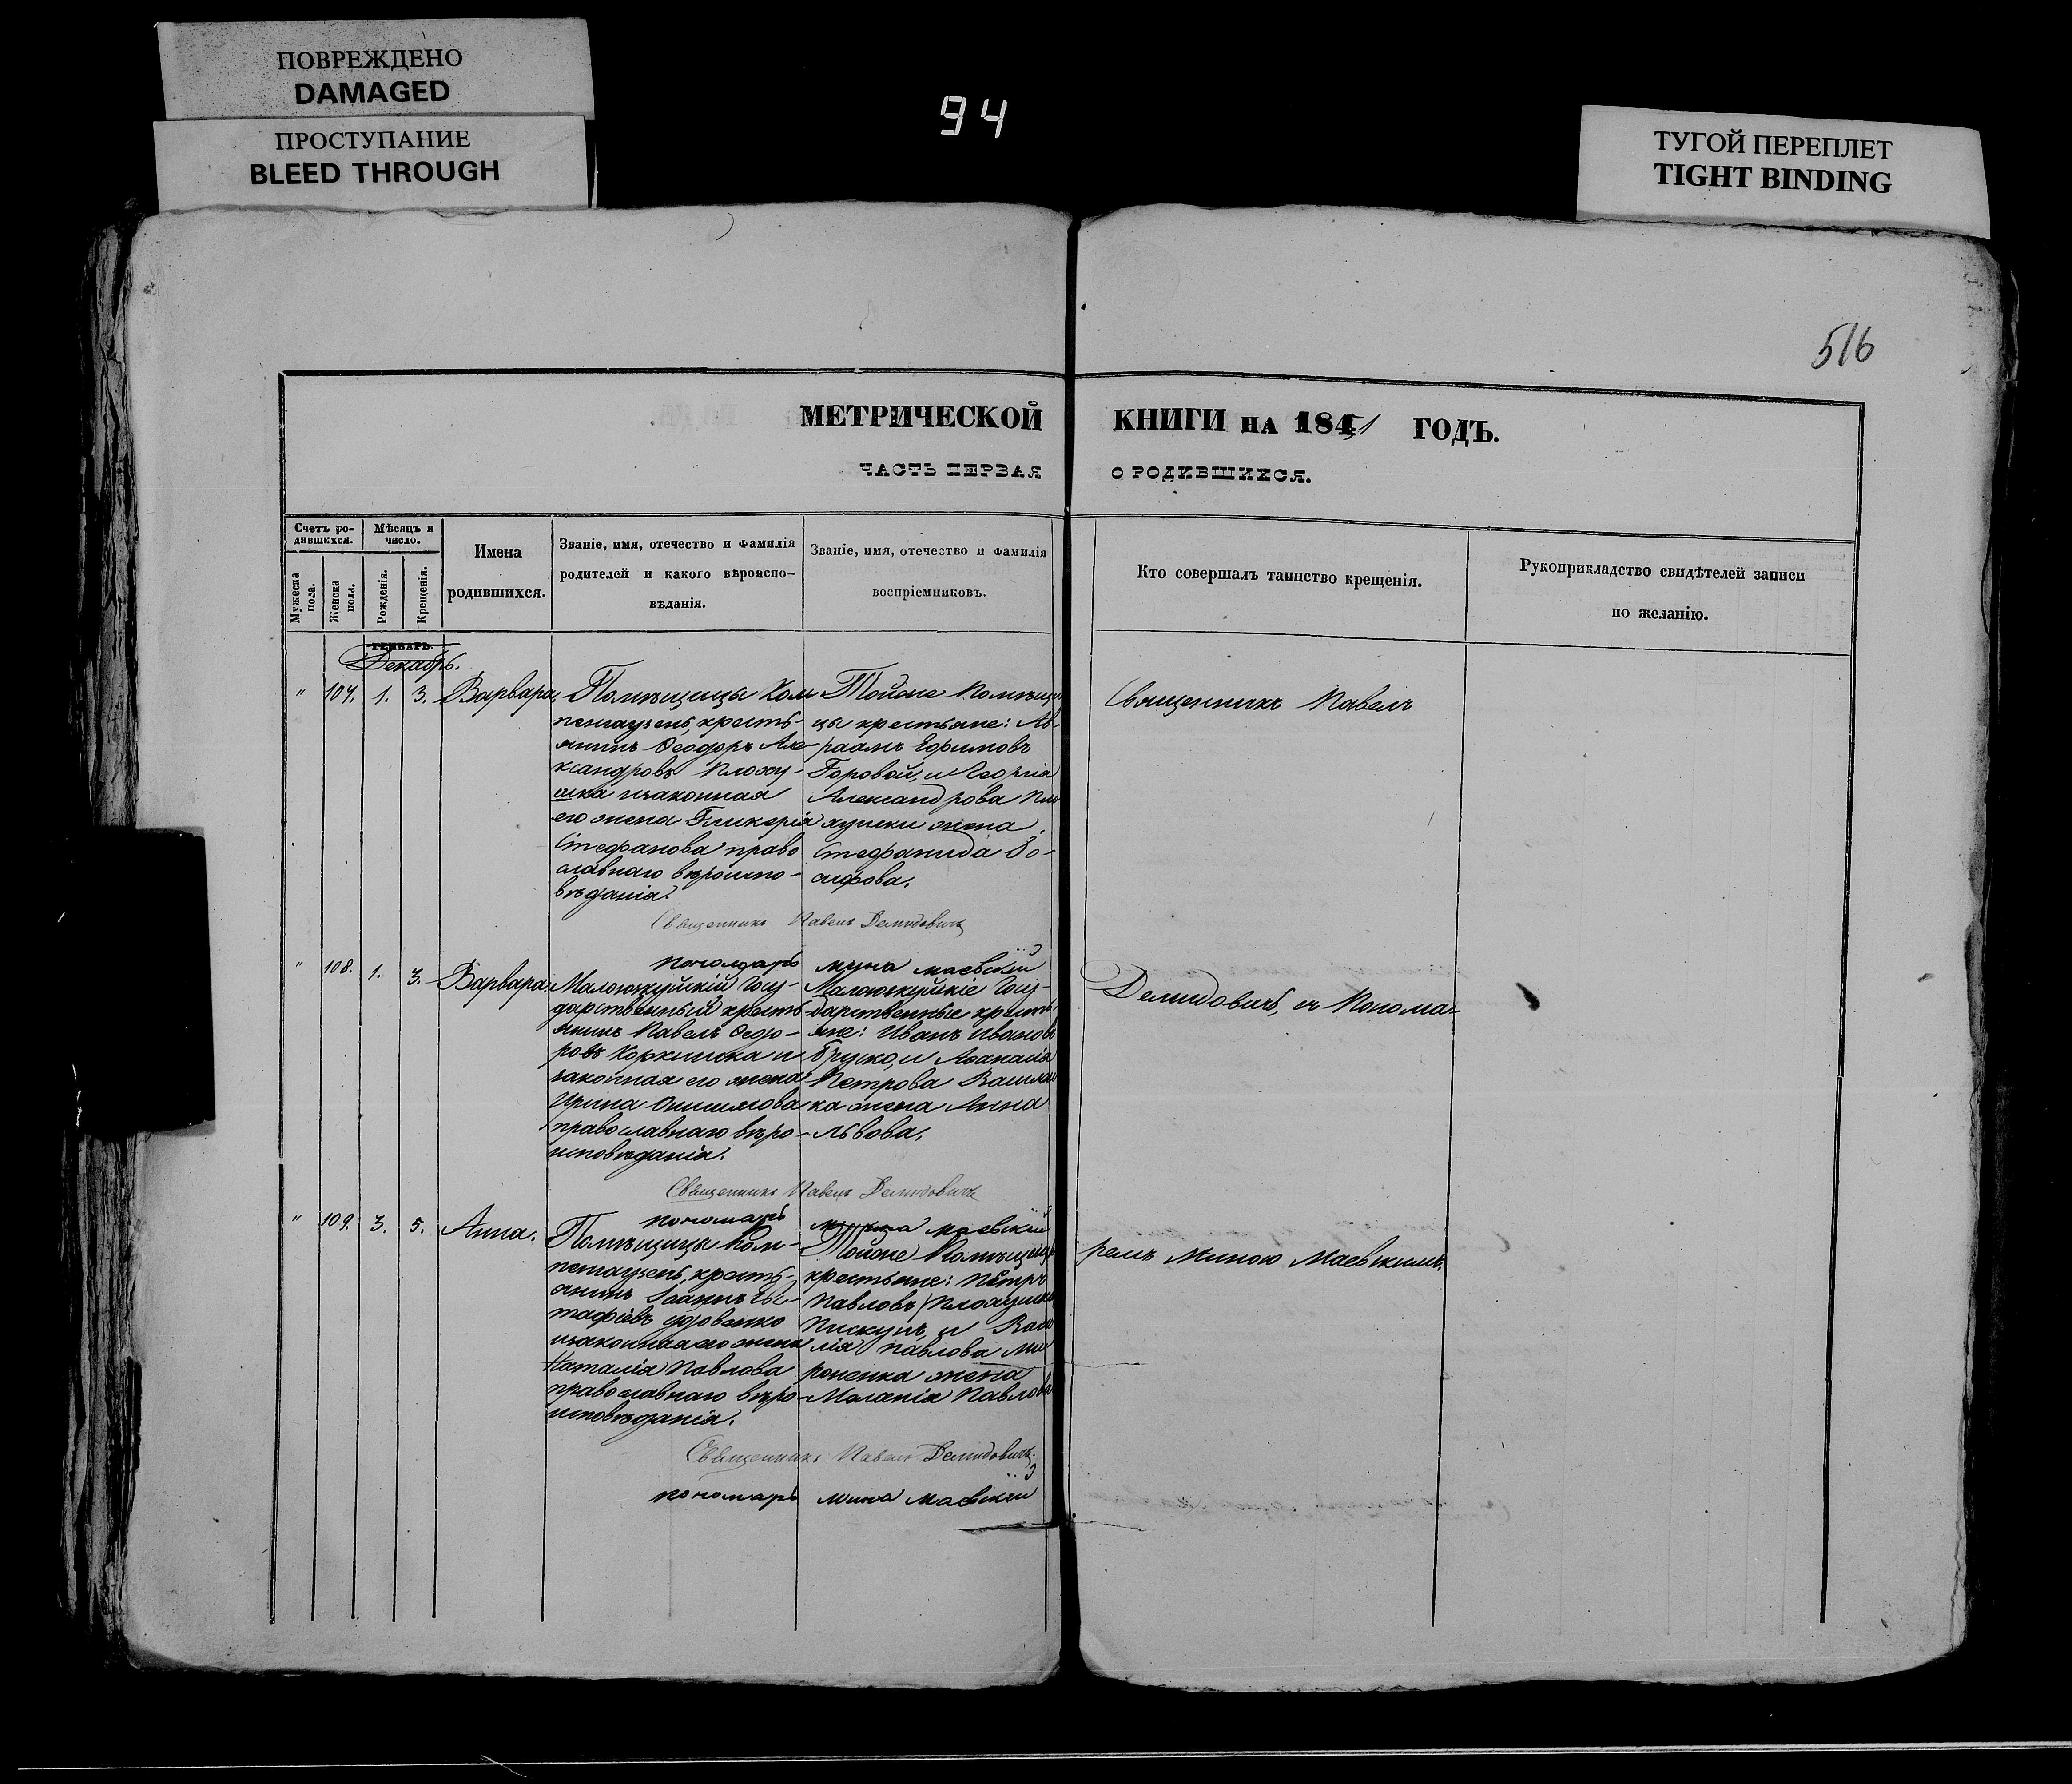 ПОВРЕЖДЕНО
DAMAGED
ПРОСТУПАНИЕ
BLEED THROUGH
94
ТУГОЙ ПЕРЕПЛЕТ
TIGHT BINDING
516
МЕТРИЧЕСКОЙ КНИГИ НА 1851 ГОДЪ.
ЧАСТЬ ПЕРВАЯ О РОДИВШИХСЯ.
Счетъ ро-
дившихся.
Мужеска
пола.
Женска
пола.
Мѣсяцъ и
число.
Рожденія.
Крещенія.
Имена
родившихся.
Званіе, имя, отечество и фамилія
родителей и какого вѣроиспо-
вѣданія.
Званіе, имя, отечество и фамилія
воспріемниковъ.
Кто совершалъ таинство крещенія.
Рукоприкладство свидѣтелей записи
по желанію.
ГЕНВАРЬ.
Декабрь.
" 107. 1. 3. Варвара.
Помѣщицы Ком
пенгаузенъ, кресть-
янинъ Ѳеодоръ Але-
ксандровъ Плоху-
шка и законная
его жена Гликерія
Стефанова право
славнаго вѣроиспо-
вѣданія.
Тойже Помѣщи
цы крестьяне: Ав-
раамъ Ефимовъ
Боровой, и Георгія
Александрова Пло
хушки жена
Стефанида Іо-
сифова.
Священникъ Павелъ Демидовичъ
пономарь мина маевскій
" 108. 1. 3. Варвара.
Государ-
дарственный кресть
янинъ Павелъ Ѳедо-
ровъ Коркишка и
законная его жена
Ирина Онисимова
православнаго вѣро-
исповѣданія.
дарственные кресть
яне: Иванъ Ивановъ
и Аѳанасія
Петрова Васил
ка жена Анна
Львова.
Священникъ Павелъ Демидовичъ
пономарь мина маевскій
" 109. 3. 5. Анна.
Помѣщицы Ком-
пенгаузенъ, кресть-
янинъ Іоаннъ Ев-
стафіевъ Удовенко
и законная его жена
Наталія Павлова
православнаго вѣро-
исповѣданія.
Тойже Помѣщицы
крестьяне: Петръ
Павловъ Плохушка
Пискунъ, и Васи
лія Павлова Ми
роненка жена
Маланія Павлова
Священникъ Павелъ Демидовичъ
пономарь мина маевскій
Священникъ Павелъ
Демидовичъ, съ Понома-
ремъ Миною Маевскимъ.